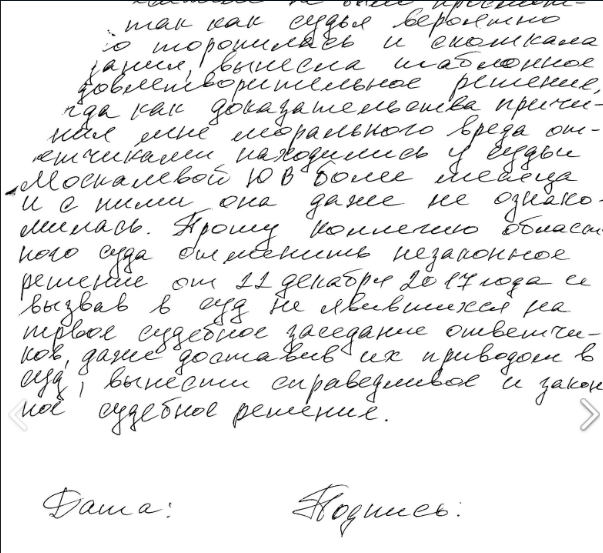 так как судья вероятно
торопилась и скомкала
вынесла шаблонное
довлетворительное решение,
гда как доказательства причи-
ния мне морального вреда от-
етчиками находились у судьи
Москалевой Ю В более месяца
и с ними она даже не ознако-
милась. Прошу коллегию област
ного суда отменить незаконное
решение от 11 декабря 2017 года и
вызвав в суд не явившихся на
первое судебное заседание ответчи-
ков, даже доставив их приводом в
суд, вынести справедливое и закон
ное судебное решение.
Дата: Подпись: